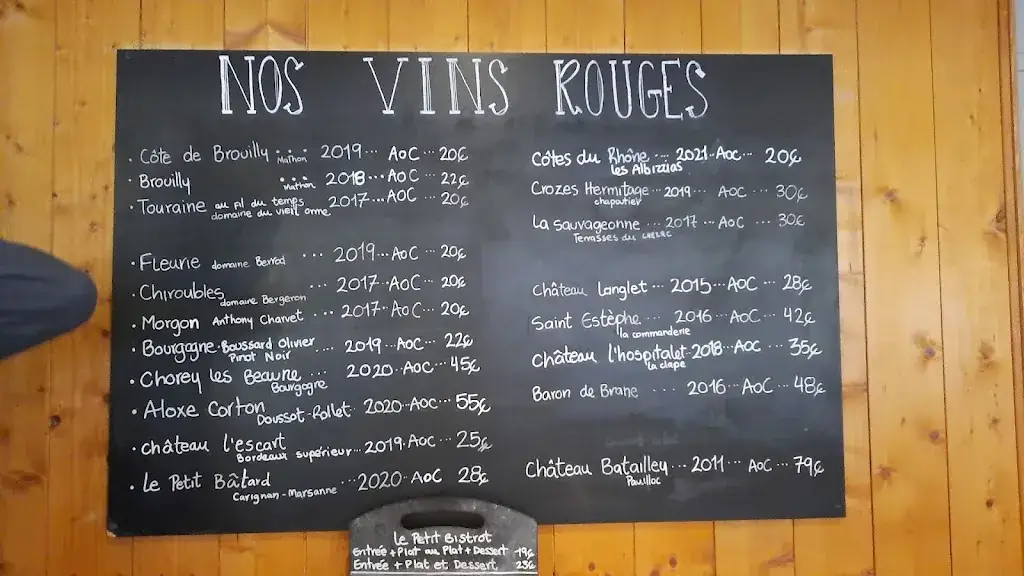 NOS VINS ROUGES
· Côte de Brouilly ... 2019 ... AOC ... 20€
Mathon
· Brouilly ... 2018 ... AOC ... 22€
Mathon
· Touraine au fil du temps 2017 ... AOC ... 20€
domaine du vieil orme
· Fleurie domaine Berrod ... 2019 ... AOC ... 20€
· Chiroubles ... 2017 ... AOC ... 20€
domaine Bergeron
· Morgon Anthony Charvet ... 2017 ... AOC ... 20€
· Bourgogne · Boussard Olivier ... 2019 ... AOC ... 22€
Pinot Noir
· Chorey les Beaune ... 2020 ... AOC ... 45€
Bourgogne
· Aloxe Corton 2020 ·· AOC ... 55€
Doussot-Rollet
· château l'escart 2019 · AOC ... 25€
Bordeaux supérieur ...
· Le Petit Bâtard ... 2020 ·· AOC 28€
Carignan-Marsanne
Côtes du Rhône ... 2021 ·· AOC ... 20€
les Albizzias
Crozes Hermitage ·· 2019 ... AOC ... 30€
chapoutier
La sauvageonne ... 2017 ... AOC ... 30€
Terrasses du
Château Langlet ... 2015 ... AOC ... 28€
Saint Estèphe ... 2016 ... AOC ... 42€
la commanderie
Château l'hospitalet 2018 ·· AOC ... 35€
la clape
Baron de Brane ... 2016 ... AOC ... 48€
Château Batailley ... 2011 ... AOC ... 79€
Pauillac
Le Petit Bistrot
Entrée + Plat ou Plat + Dessert 19€
Entrée + Plat et Dessert 23€